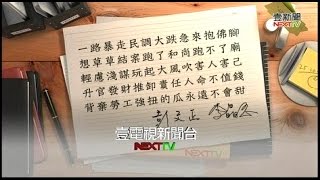 壹新聞
NEXTTV
一路暴走民調大跌急來抱佛腳
想草草結案跑了和尚跑不了廟
輕慮淺謀玩起大風吹害人害己
升官發財推卸責任人命不值錢
背棄勞工強扭的瓜永遠不會甜
彭文正 李晶玉
壹電視新聞台
NEXTTV
NEXTTV